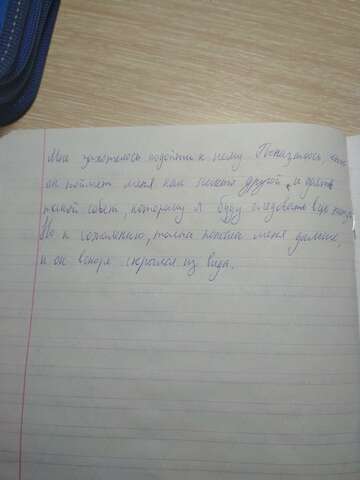 Мне захотелось подойти к нему. Показалось, что
он поймет меня как никто другой, и даст
такой совет, которому я буду следовать всю жизнь.
Но к сожалению, толпа понесла меня дальше,
и он вскоре скрылся из вида.